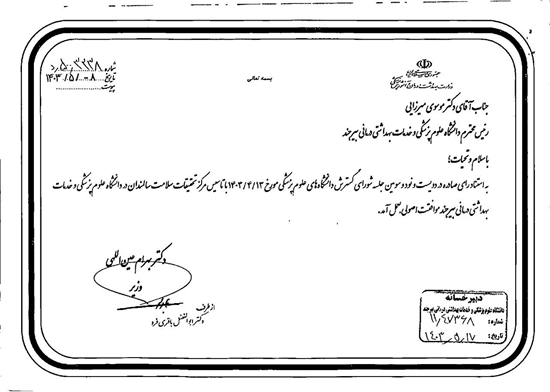 شماره ۳۲۳۸/۵۰۰/د
تاریخ ۱۴۰۳/۵/۰۸
پیوست
جمهوری اسلامی ایران
وزارت بهداشت، درمان و آموزش پزشکی
بسمه تعالی
جناب آقای دکتر موسوی میرزایی
رئیس محترم دانشگاه علوم پزشکی و خدمات بهداشتی درمانی بیرجند
با سلام و تحیات؛
به استناد رای صادره در دویست و نود و سومین جلسه شورای گسترش دانشگاه‌های علوم پزشکی مورخ ۱۴۰۳/۴/۱۳ با تاسیس مرکز تحقیقات سلامت سالمندان در دانشگاه علوم پزشکی و خدمات
بهداشتی درمانی بیرجند موافقت اصولی بعمل آمد.
دکتر بهرام عین‌اللهی
وزیر
از طرف
دکتر ابوالفضل باقری فرد
دبیرخانه
دانشگاه علوم پزشکی و خدمات بهداشتی درمانی بیرجند
شماره: ۱۱/۴۷۳۶۸
تاریخ: ۱۴۰۳/۵/۱۷